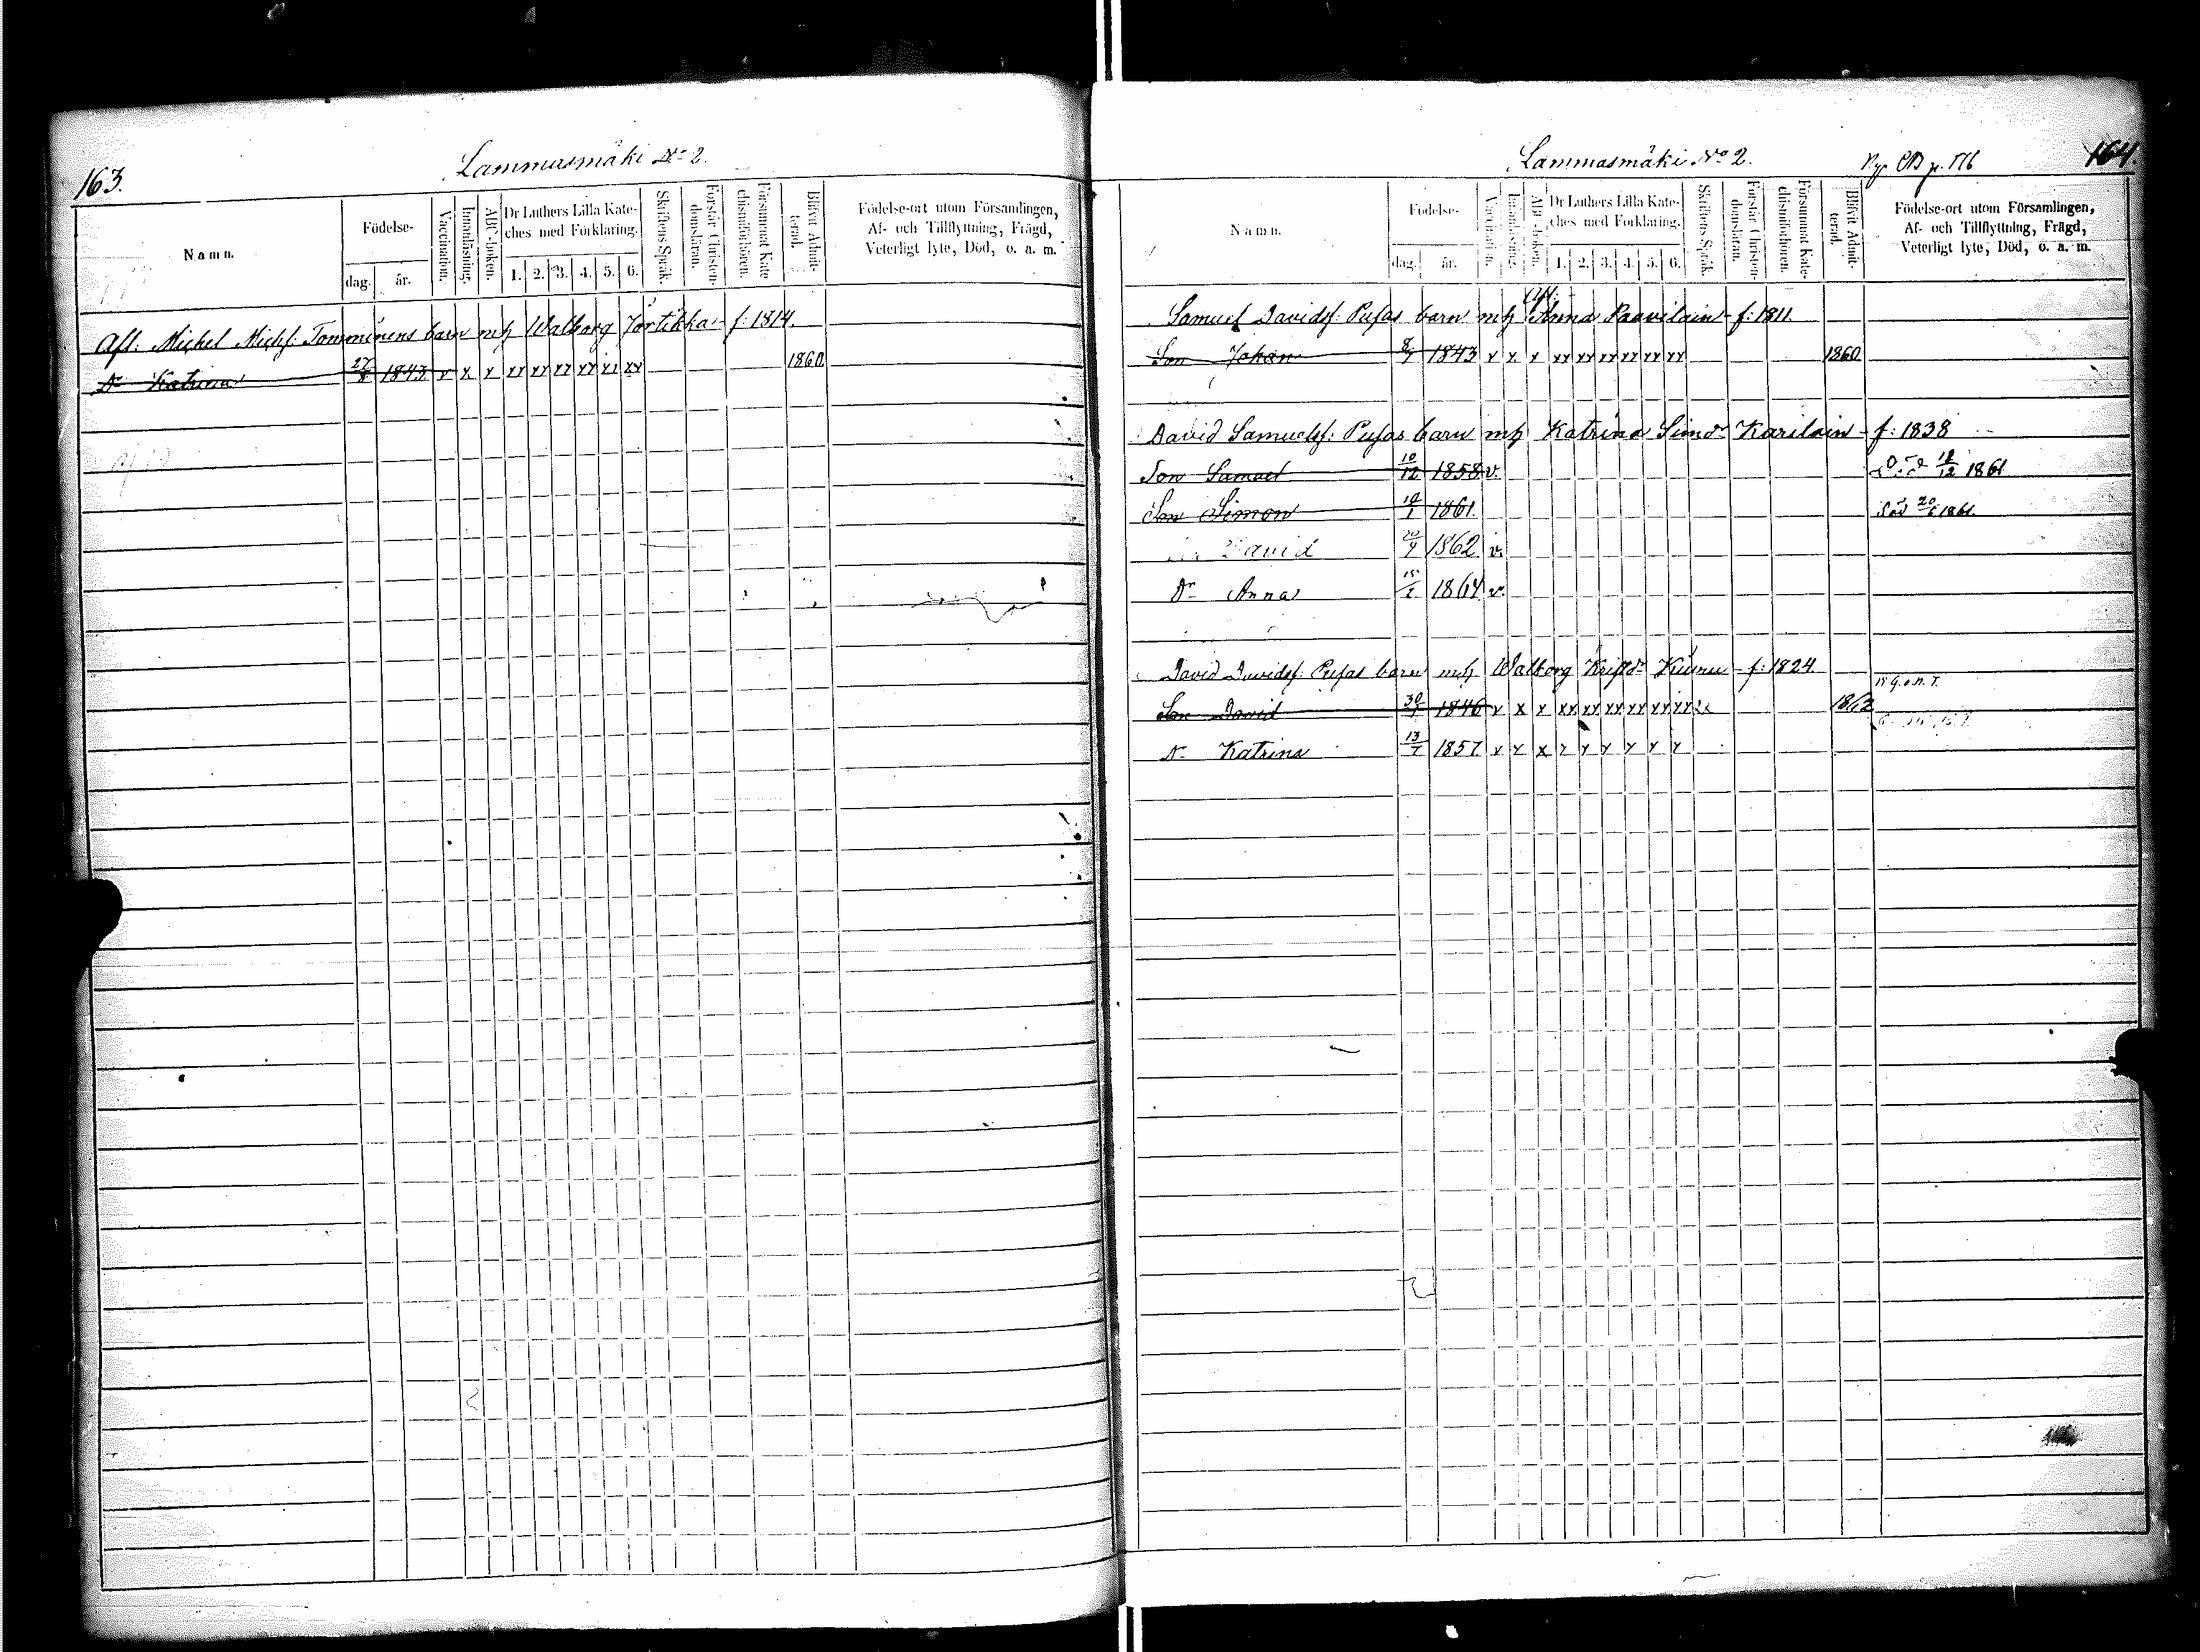 163.
Lammasmäki No 2.
Namn.
Födelse-
dag.
år.
Vaccination.
Innanläsning.
ABC-boken.
Dr Luthers Lilla Kate-
ches med Förklaring.
1. 2. 3. 4. 5. 6.
Skriftens Språk.
Förstår Christen-
domsläran.
Försummat Kate-
chismiförhören.
Blifvit Admit-
terad.
Födelse-ort utom Församlingen,
Af- och Tillflyttning, Frägd,
Veterligt lyte, Död, o. a. m.
Afl. Michel Michsf. Tomminens barn mh Walborg Törtikka f. 1814.
Dr Katrina 27/8 1843 v x x xx xx xx xx xx xx 1860
Lammasmäki No 2.
Ny CB p. 176
164.
Namn.
Födelse-
dag.
år.
Vaccination.
Innanläsning.
ABC-boken.
Dr Luthers Lilla Kate-
ches med Förklaring.
1. 2. 3. 4. 5. 6.
Skriftens Språk.
Förstår Christen-
domsläran.
Försummat Kate-
chismiförhören.
Blifvit Admit-
terad.
Födelse-ort utom Församlingen,
Af- och Tillflyttning, Frägd,
Veterligt lyte, Död, o. a. m.
Samuel Davidsf. Pusas barn mh Afl. Anna Paavilain f. 1811
Son Johan 8/7 1843 v x x xx xx xx xx xx xx 1860
David Samuelsf. Pusas barn mh Katrina Simdr Karilain f. 1838
Son Samuel 10/12 1858 v. Död 18/12 1861
Son Simon 10/1 1861. Död 20/5 1861.
David 20/9 1862 v.
Dr Anna 15/2 1864 v.
David Davidsf. Pusas barn mh Walborg Kristdr Kuisma f. 1824
Son David 30/1 1846 v x x xx xx xx xx xx xx 1862
Dr Katrina 13/7 1857. v x x x x x x x x